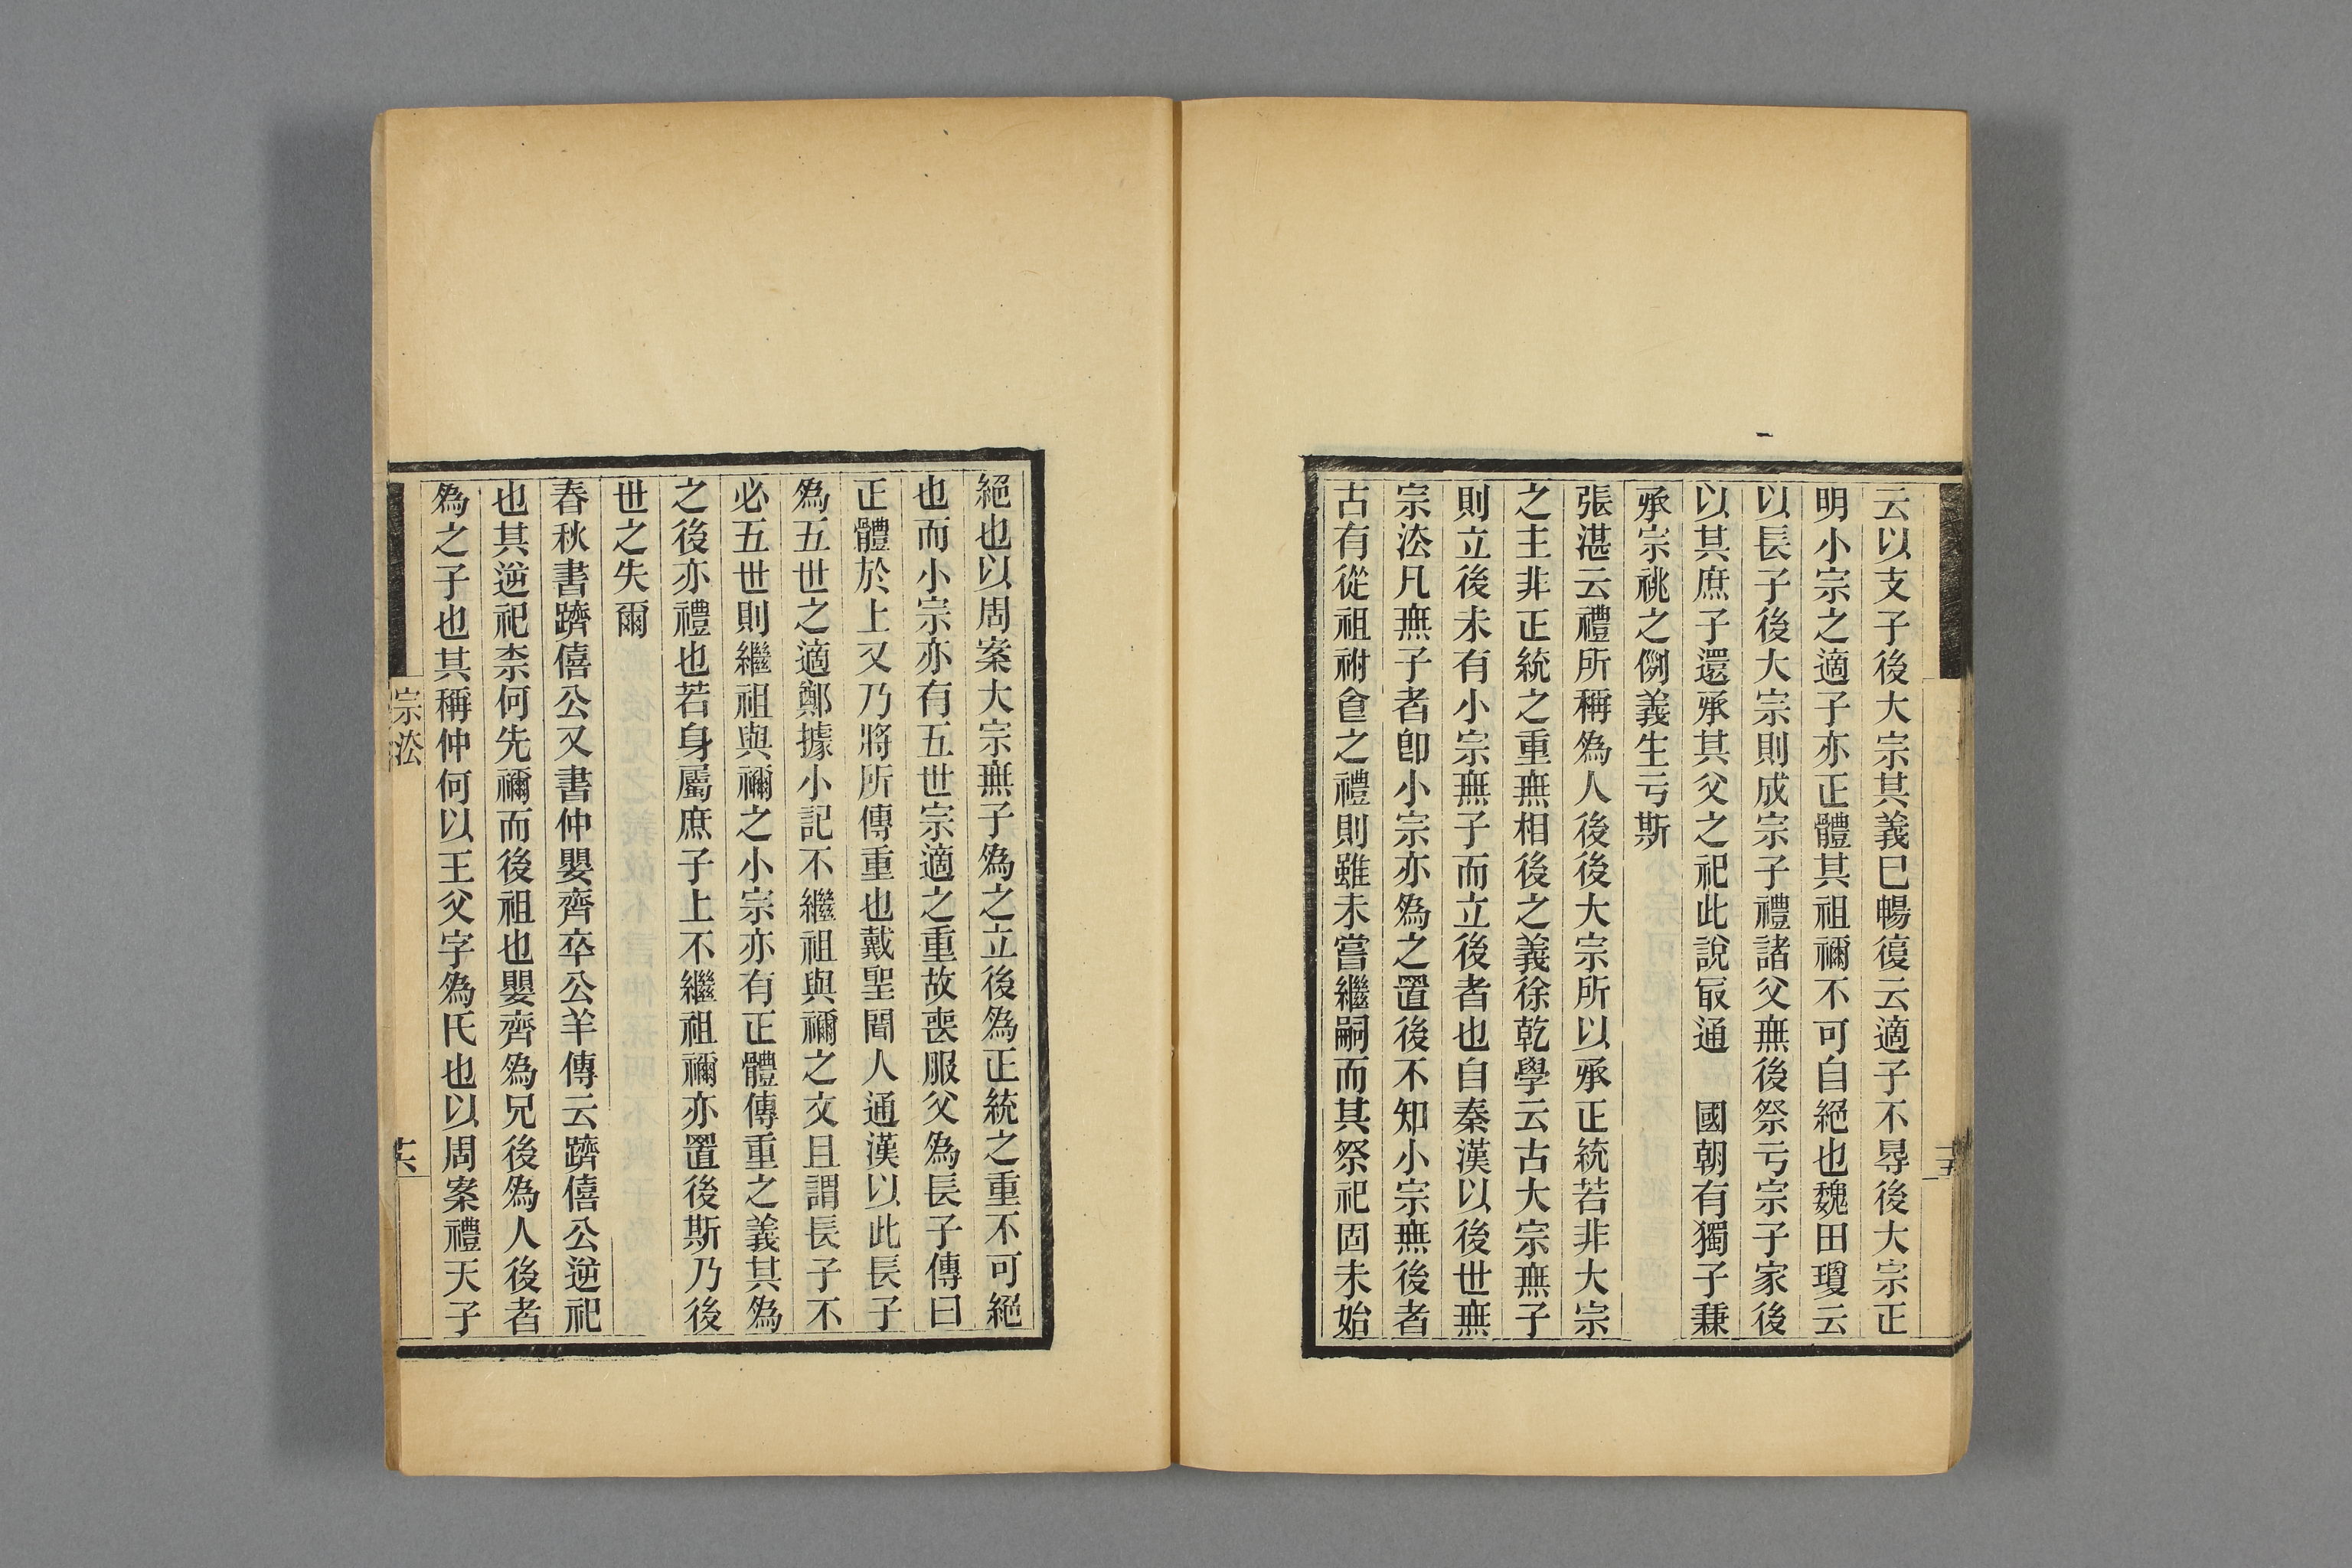 云以支子後大宗其義巳暢復云適子不㝵後大宗正
明小宗之適子亦正體其祖禰不可自絕也魏田瓊云
以長子後大宗則成宗子禮諸父無後祭亏宗子家後
以其庶子還承其父之祀此說冣通　國朝有獨子兼
承宗祧之例義生亏斯
張湛云禮所稱為人後後大宗所以承正統若非大宗
之主非正統之重無相後之義徐乾學云古大宗無子
則立後未有小宗無子而立後者也自秦漢以後世無
宗㳒凡無子者卽小宗亦為之置後不知小宗無後者
古有從祖祔食之禮則雖未嘗繼嗣而其祭祀固未始
絕也以周案大宗無子為之立後為正統之重不可絕
也而小宗亦有五世宗適之重故喪服父為長子傳曰
正體於上又乃將所傳重也戴聖聞人通漢以此長子
為五世之適鄭據小記不繼祖與禰之文且謂長子不
必五世則繼祖與禰之小宗亦有正體傳重之義其為
之後亦禮也若身屬庶子上不繼祖禰亦置後斯乃後
世之失爾
春秋書躋僖公又書仲嬰齊卒公羊傳云躋僖公逆祀
也其逆祀柰何先禰而後祖也嬰齊為兄後為人後者
為之子也其稱仲何以王父字為氏也以周案禮天子
宗㳒